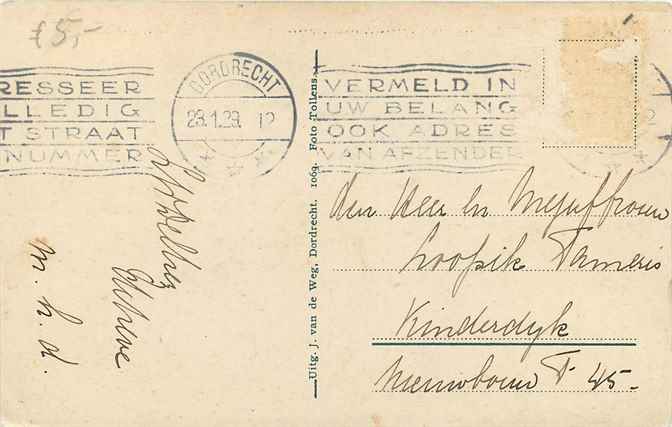 £5,-
RESSEER
LLEDIG
T STRAAT
NUMMER
DORDRECHT
23.1.29. 12
VERMELD IN
UW BELANG
OOK ADRES
VAN AFZENDER
12
m. h. d.
Uitg. J. van de Weg, Dordrecht. 1069. Foto Tollens.
den Heer en Mejuffrouw
Loopik
Kinderdyk
Nieuwbouw T 45-